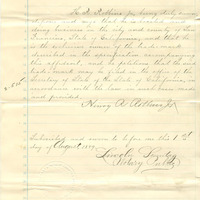 being duly sworn
and says that he is located and
doing business in the city and county of San
Francisco, State of California, and that he
is the exclusive owner of the trade mark
described in the specification annexed to
this affidavit, and he petitions that the said
trade-mark may be filed in the office of the
Secretary of State of the State of California, in
accordance with the law in such case made
and provided.
Henry A
Subscribed and sworn to before me this 1st
day of August 1889.
Lincoln
Notary Public